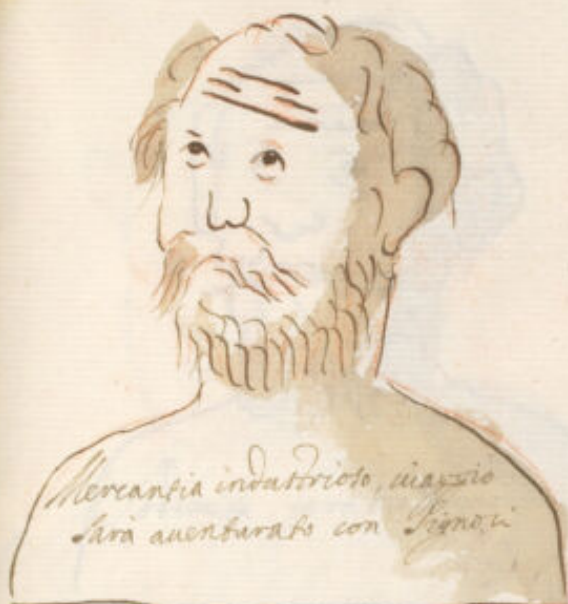 Mercantia industrioso, uiaggio
sarà auenturato con Signori